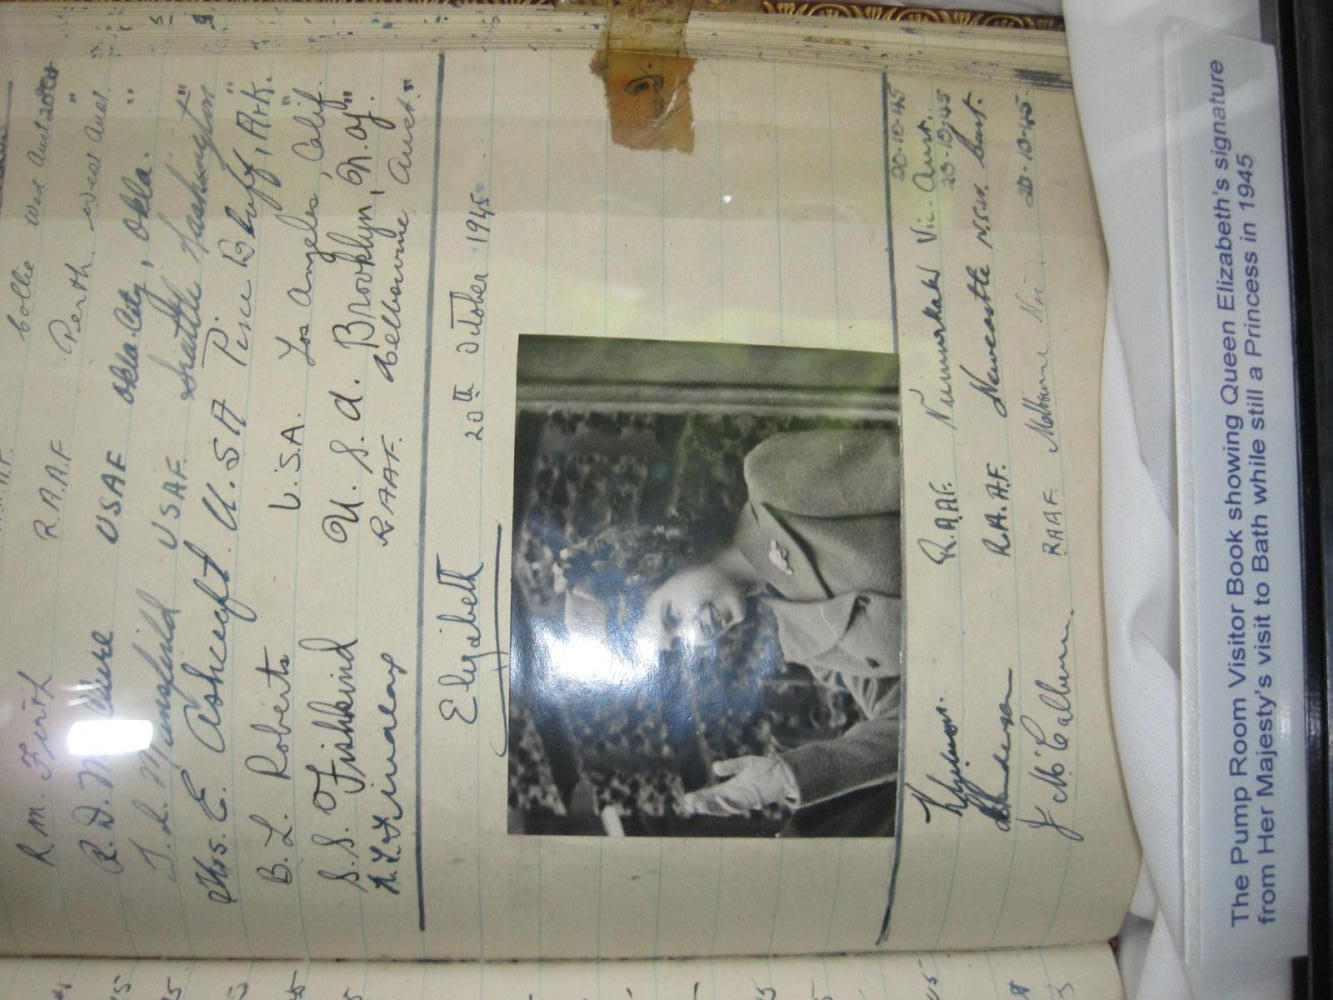 R.M. Firth R.A.A.F Collie West Aust
R.A.A.F Perth. West Aust. "
R.D. USAF Okla. City, Okla. "
Mansfield USAF. Seattle Washington "
Chas. E. Ashcraft. U.S.A Pine Bluff, Ark. "
B.L. Roberts U.S.A. Los Angeles Calif. "
S.S. Fishkind U.S.A. Brooklyn, N.Y. "
RAAF. Melbourne Aust. "
Elizabeth 20TH October 1945
20.10.45
R.A.A.F. Numurkah Vic. Aust.
20.10.45
R.A.A.F. Newcastle N.S.W. Aust.
J McCallum. RAAF Melbourne Vic. 20.10.45
The Pump Room Visitor Book showing Queen Elizabeth's signature
from Her Majesty's visit to Bath while still a Princess in 1945